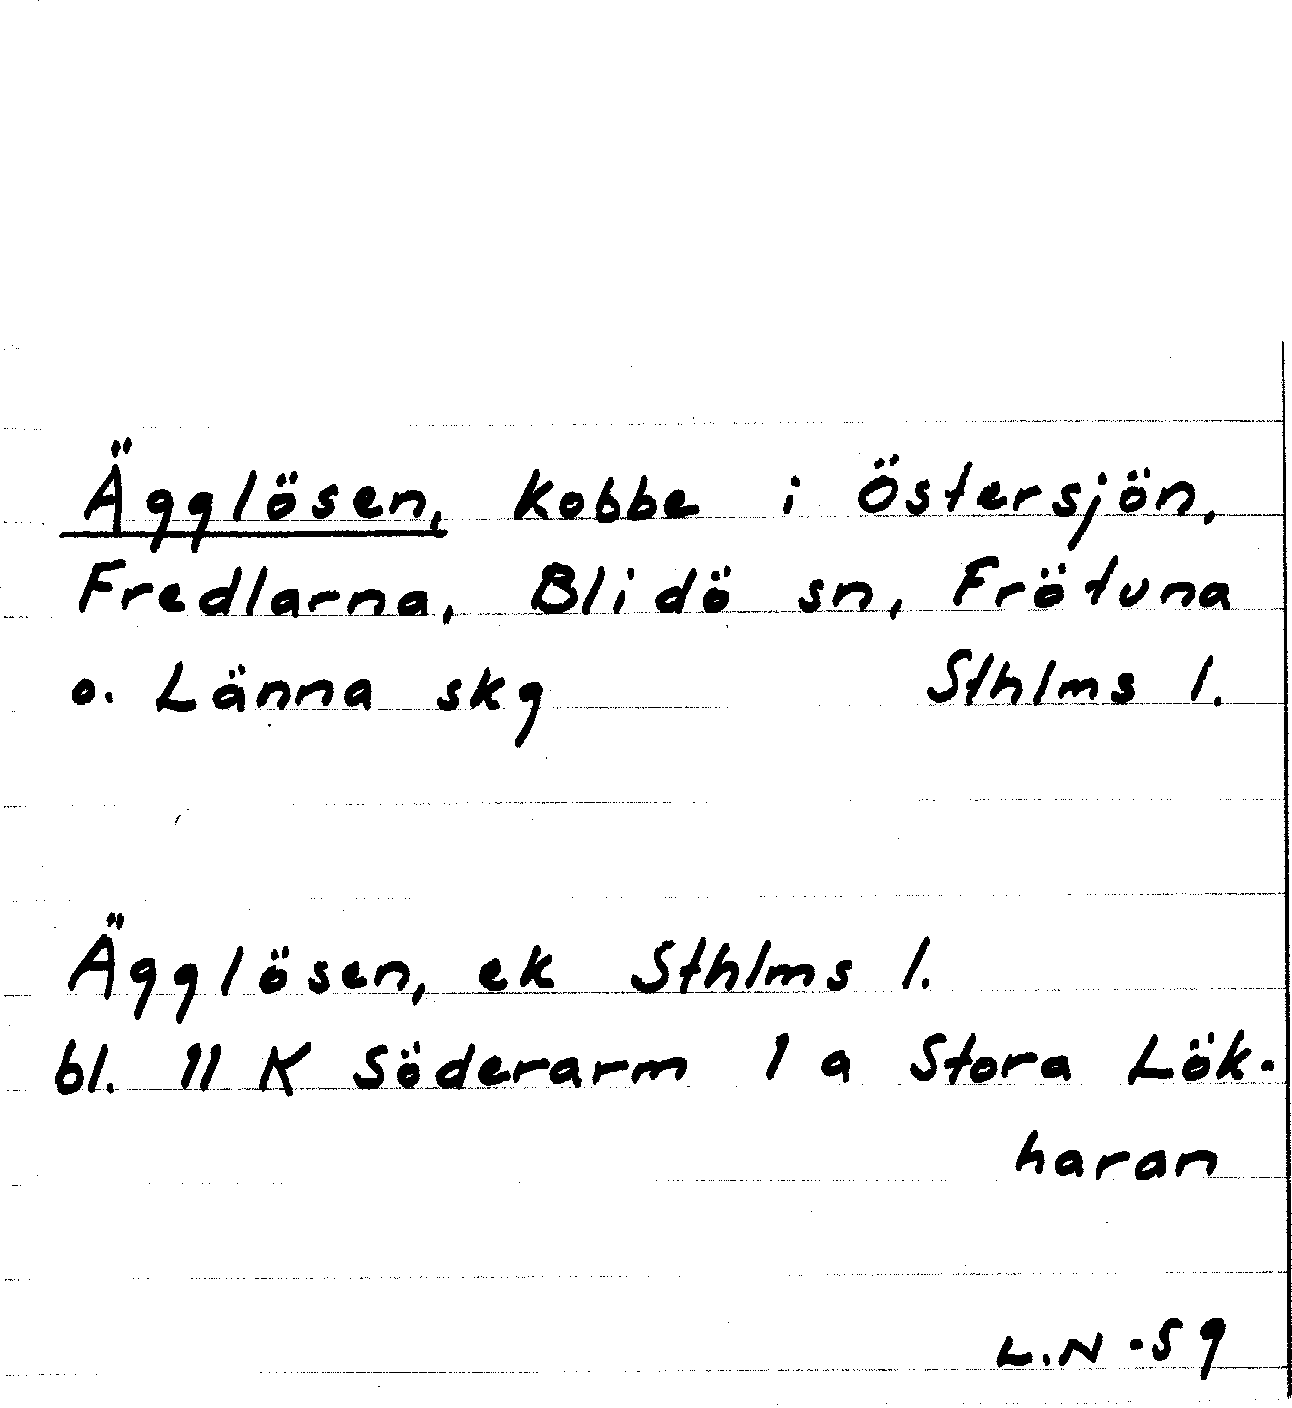 Ägglösen, kobbe i Östersjön,
Fredlarna, Blidö sn, Frötuna
o. Länna skg Sthlms l.
Ägglösen, ek Sthlms l.
bl. 11 K Söderarm 1 a Stora Lök-
haran
L.N -59